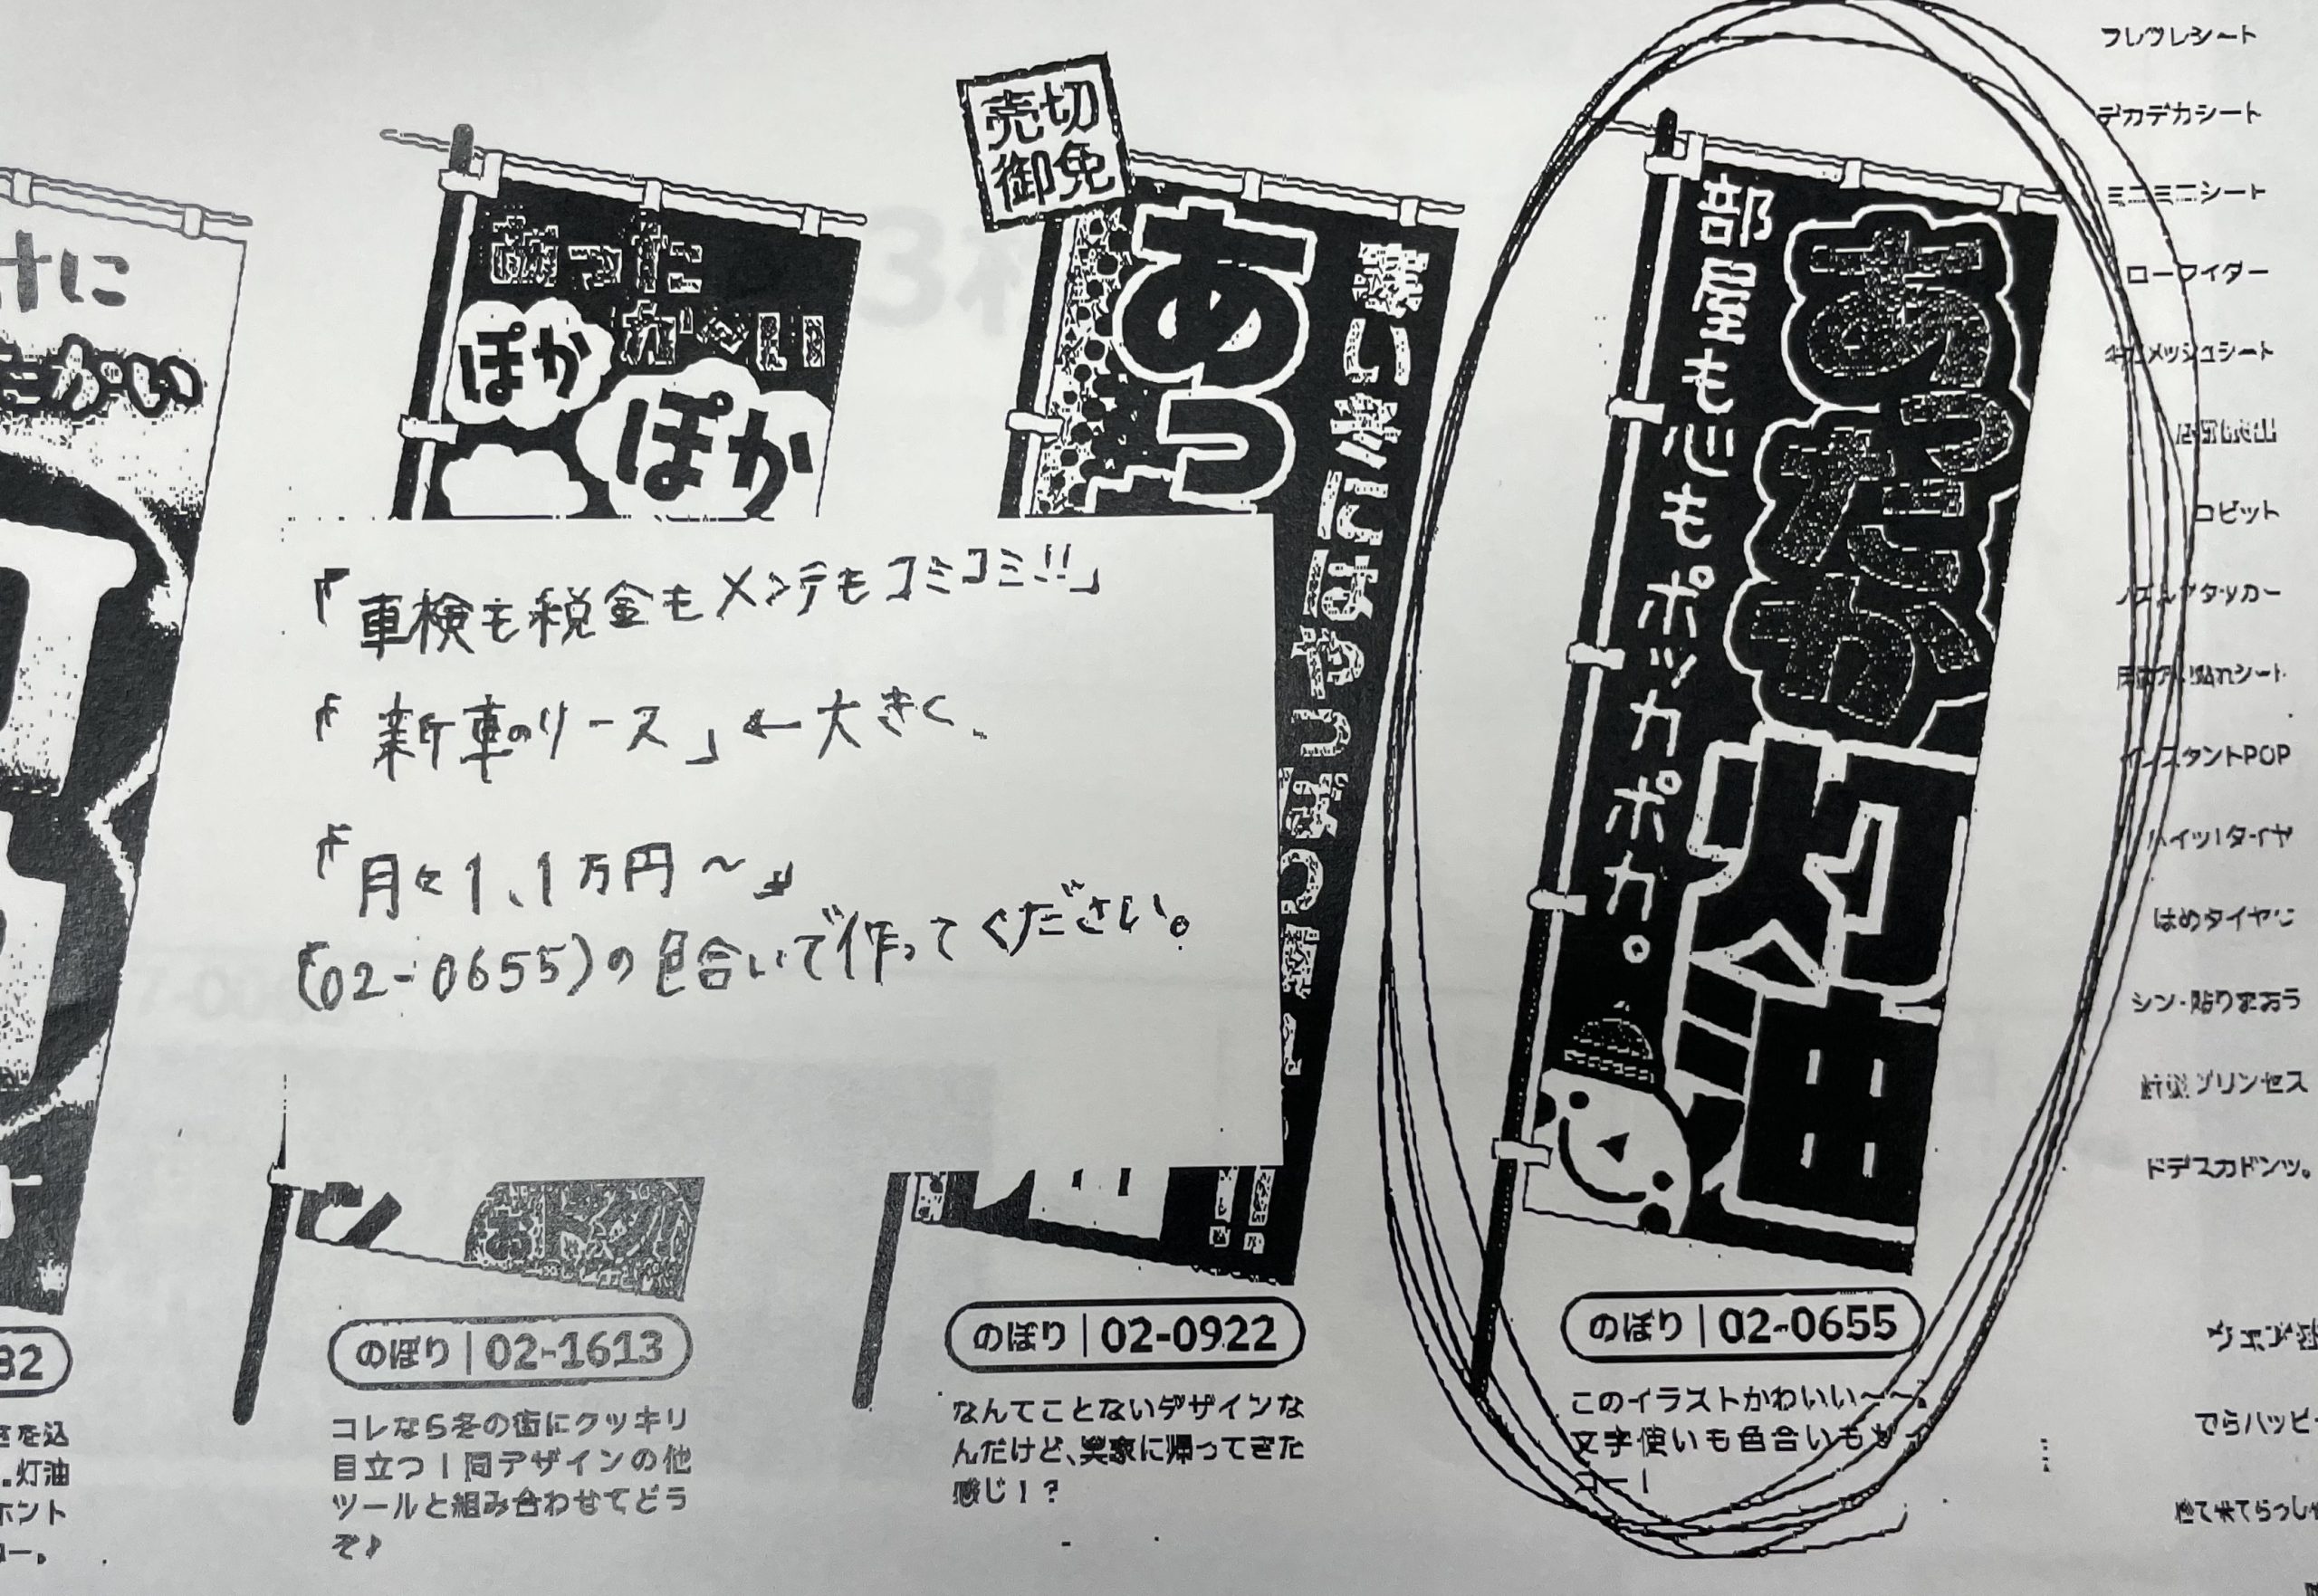 売切
御免
あった
か〜い
ぽか
ぽか
あっ
寒い冬にはやっぱり
部屋も心もポッカポカ。
あったか
灯油
「車検も税金もメンテもコミコミ!!」
「新車のリース」←大きく、
「月々1、1万円〜」
(02-0655)の色合いで作ってください。
のぼり|02-1613
コレなら冬の街にクッキリ
目立つ!同デザインの他
ツールと組み合わせてどう
ぞ♪
のぼり|02-0922
なんてことないデザインな
んだけど、実家に帰ってきた
感じ!?
のぼり|02-0655
このイラストかわいい〜〜。
文字使いも色合いも
32
を込
灯油
ホント
フレフレシート
デカデカシート
ミニミニシート
ローライダー
メッシュシート
コビット
アタッカー
シート
インスタントPOP
ハイッ!タイヤ
はめタイヤ
シン・貼りまおう
プリンセス
ドデスカドンッ。
でらハッピ